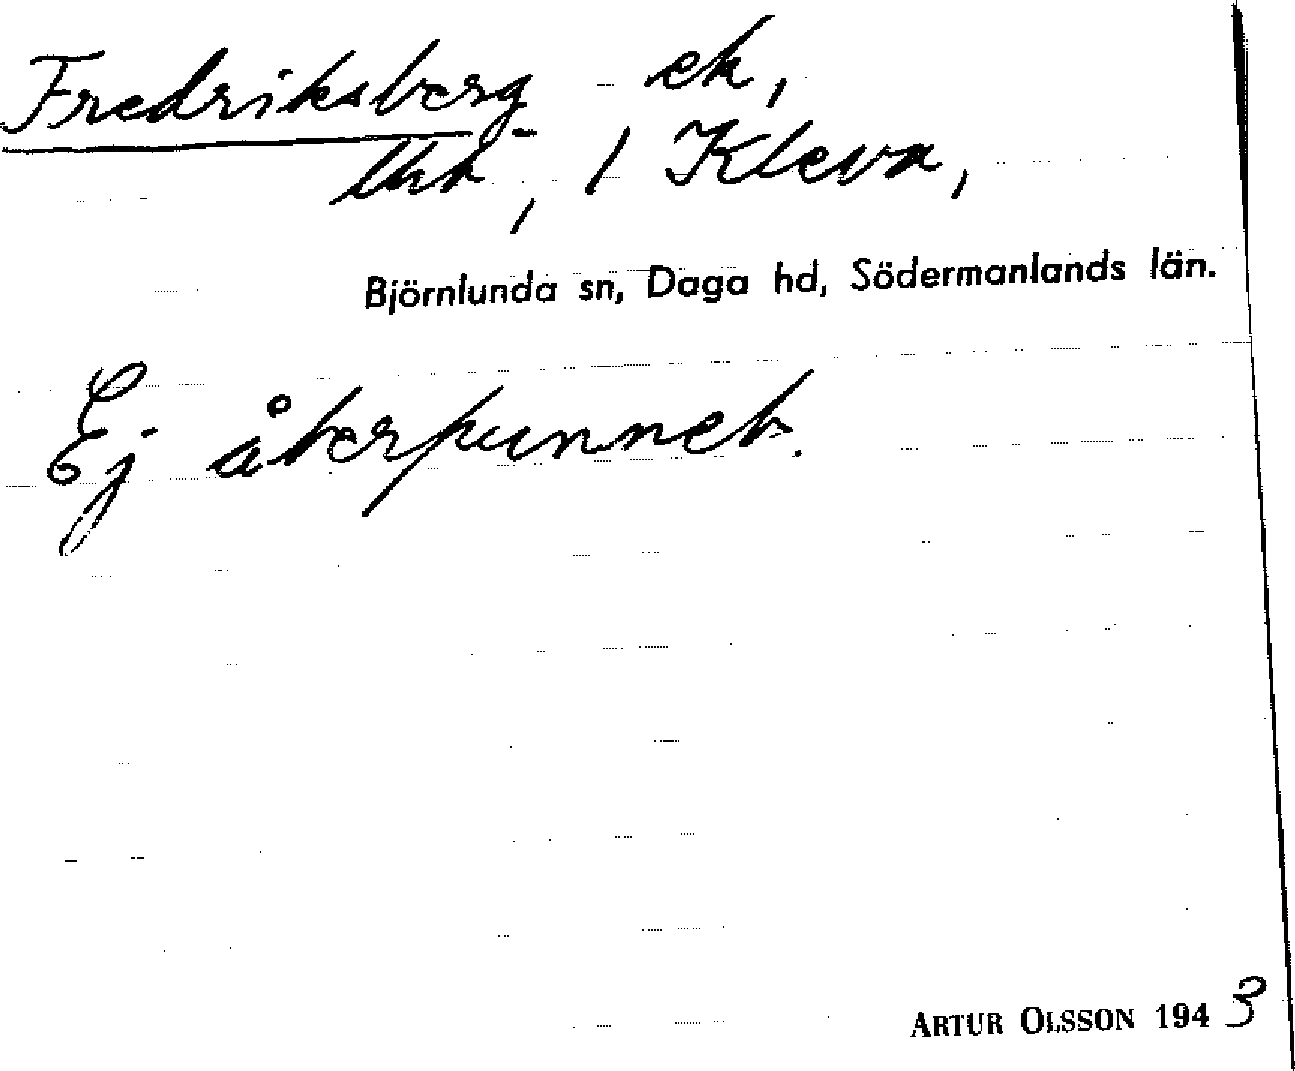 Fredriksberg ek,
1 Kleva,
Björnlunda sn, Daga hd, Södermanlands län.
Ej återfunnet.
ARTUR OLSSON 1943